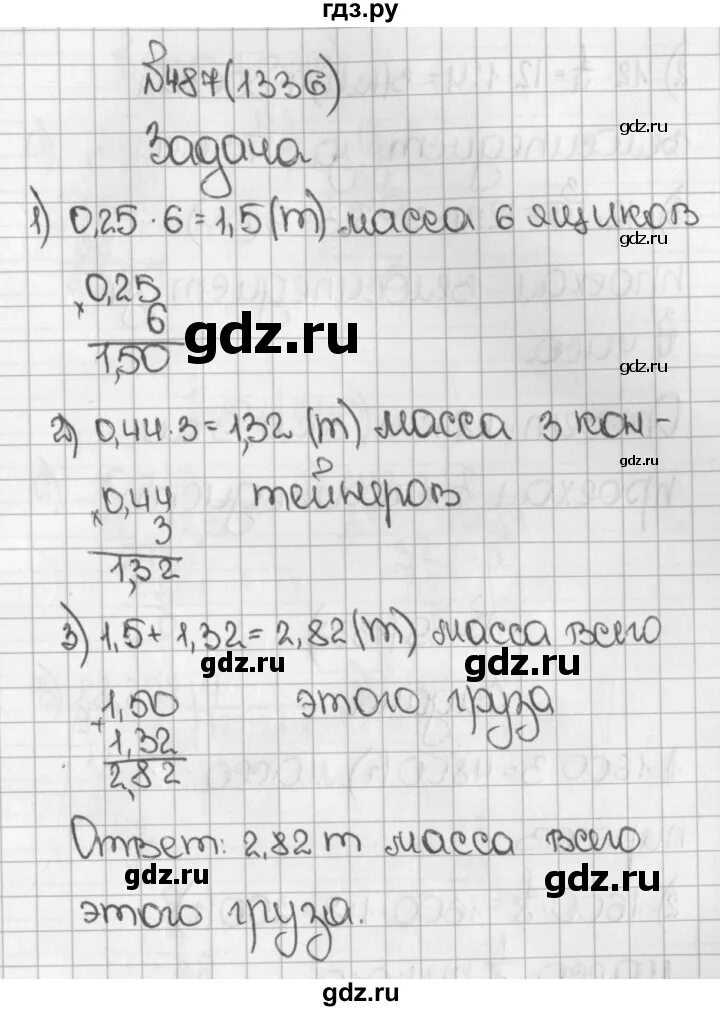 гдз.ру
№487(1336)
gdz.ru
Задача
1) 0,25 · 6 = 1,5 (т) масса 6 ящиков
gdz.ru
× 0,25
6
gdz.ru
1,50
gdz.ru
2) 0,44 · 3 = 1,32 (т) масса 3 кон-
gdz.ru
× 0,44 тейнеров
3
1,32
3) 1,5 + 1,32 = 2,82 (т) масса всего
gdz.ru gdz.ru
+ 1,50 этого груза
1,32
2,82
Ответ: 2,82 т масса всего
gdz.ru gdz.ru
этого груза.
gdz.ru